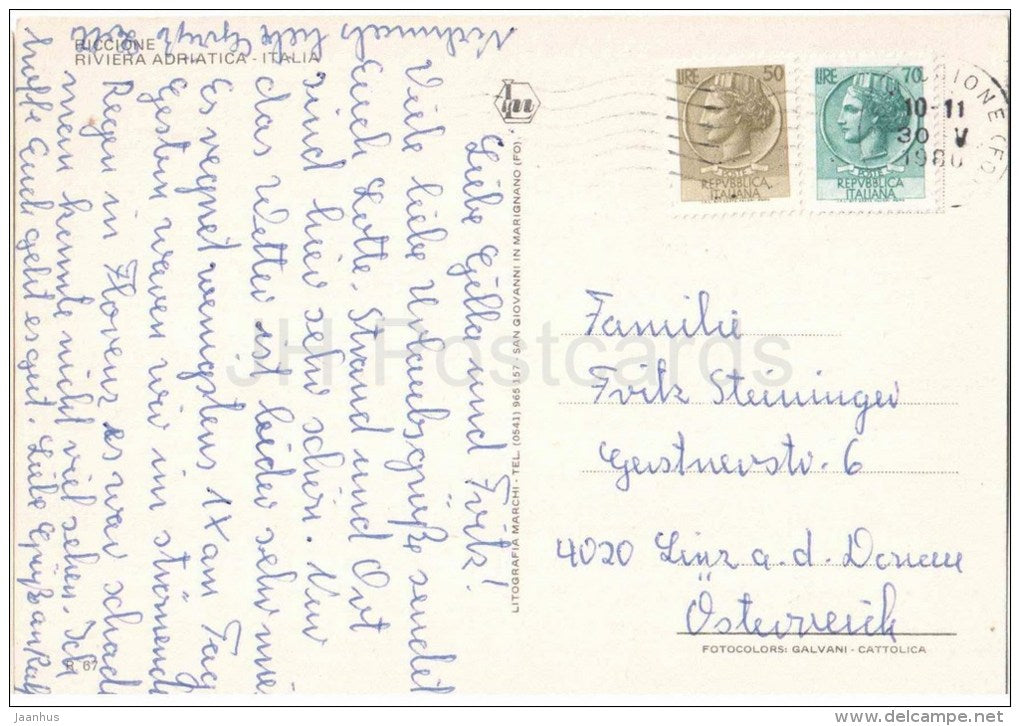 RICCIONE
RIVIERA ADRIATICA - ITALIA
Liebe Gella und Fritz!
Viele liebe Urlaubsgrüße sendet
Euch Lotte. Strand und Ort
sind hier sehr schön. Nur
das Wetter ist leider sehr mies
Es regnet wenigstens 1x am Tag
Gestern waren wir im strömenden
Regen in Florenz es war schade
man konnte nicht viel sehen. Ich
hoffe Euch geht es gut. Liebe Grüße an
Nochmals liebe Grüße
Lotte
R 67
LITOGRAFIA MARCHI - TEL. (0541) 965 157 - SAN GIOVANNI IN MARIGNANO (FO).
LIRE 50
POSTE
REPVBBLICA
ITALIANA
LIRE 70
POSTE
REPVBBLICA
ITALIANA
IONE (FO)
10-11
30 V
1980
Familie
Fritz Steininger
Gerstnerstr. 6
4020 Linz a. d. Donau
Österreich
FOTOCOLORS: GALVANI - CATTOLICA
JH Postcards
Jaanhus
www.delcampe.net